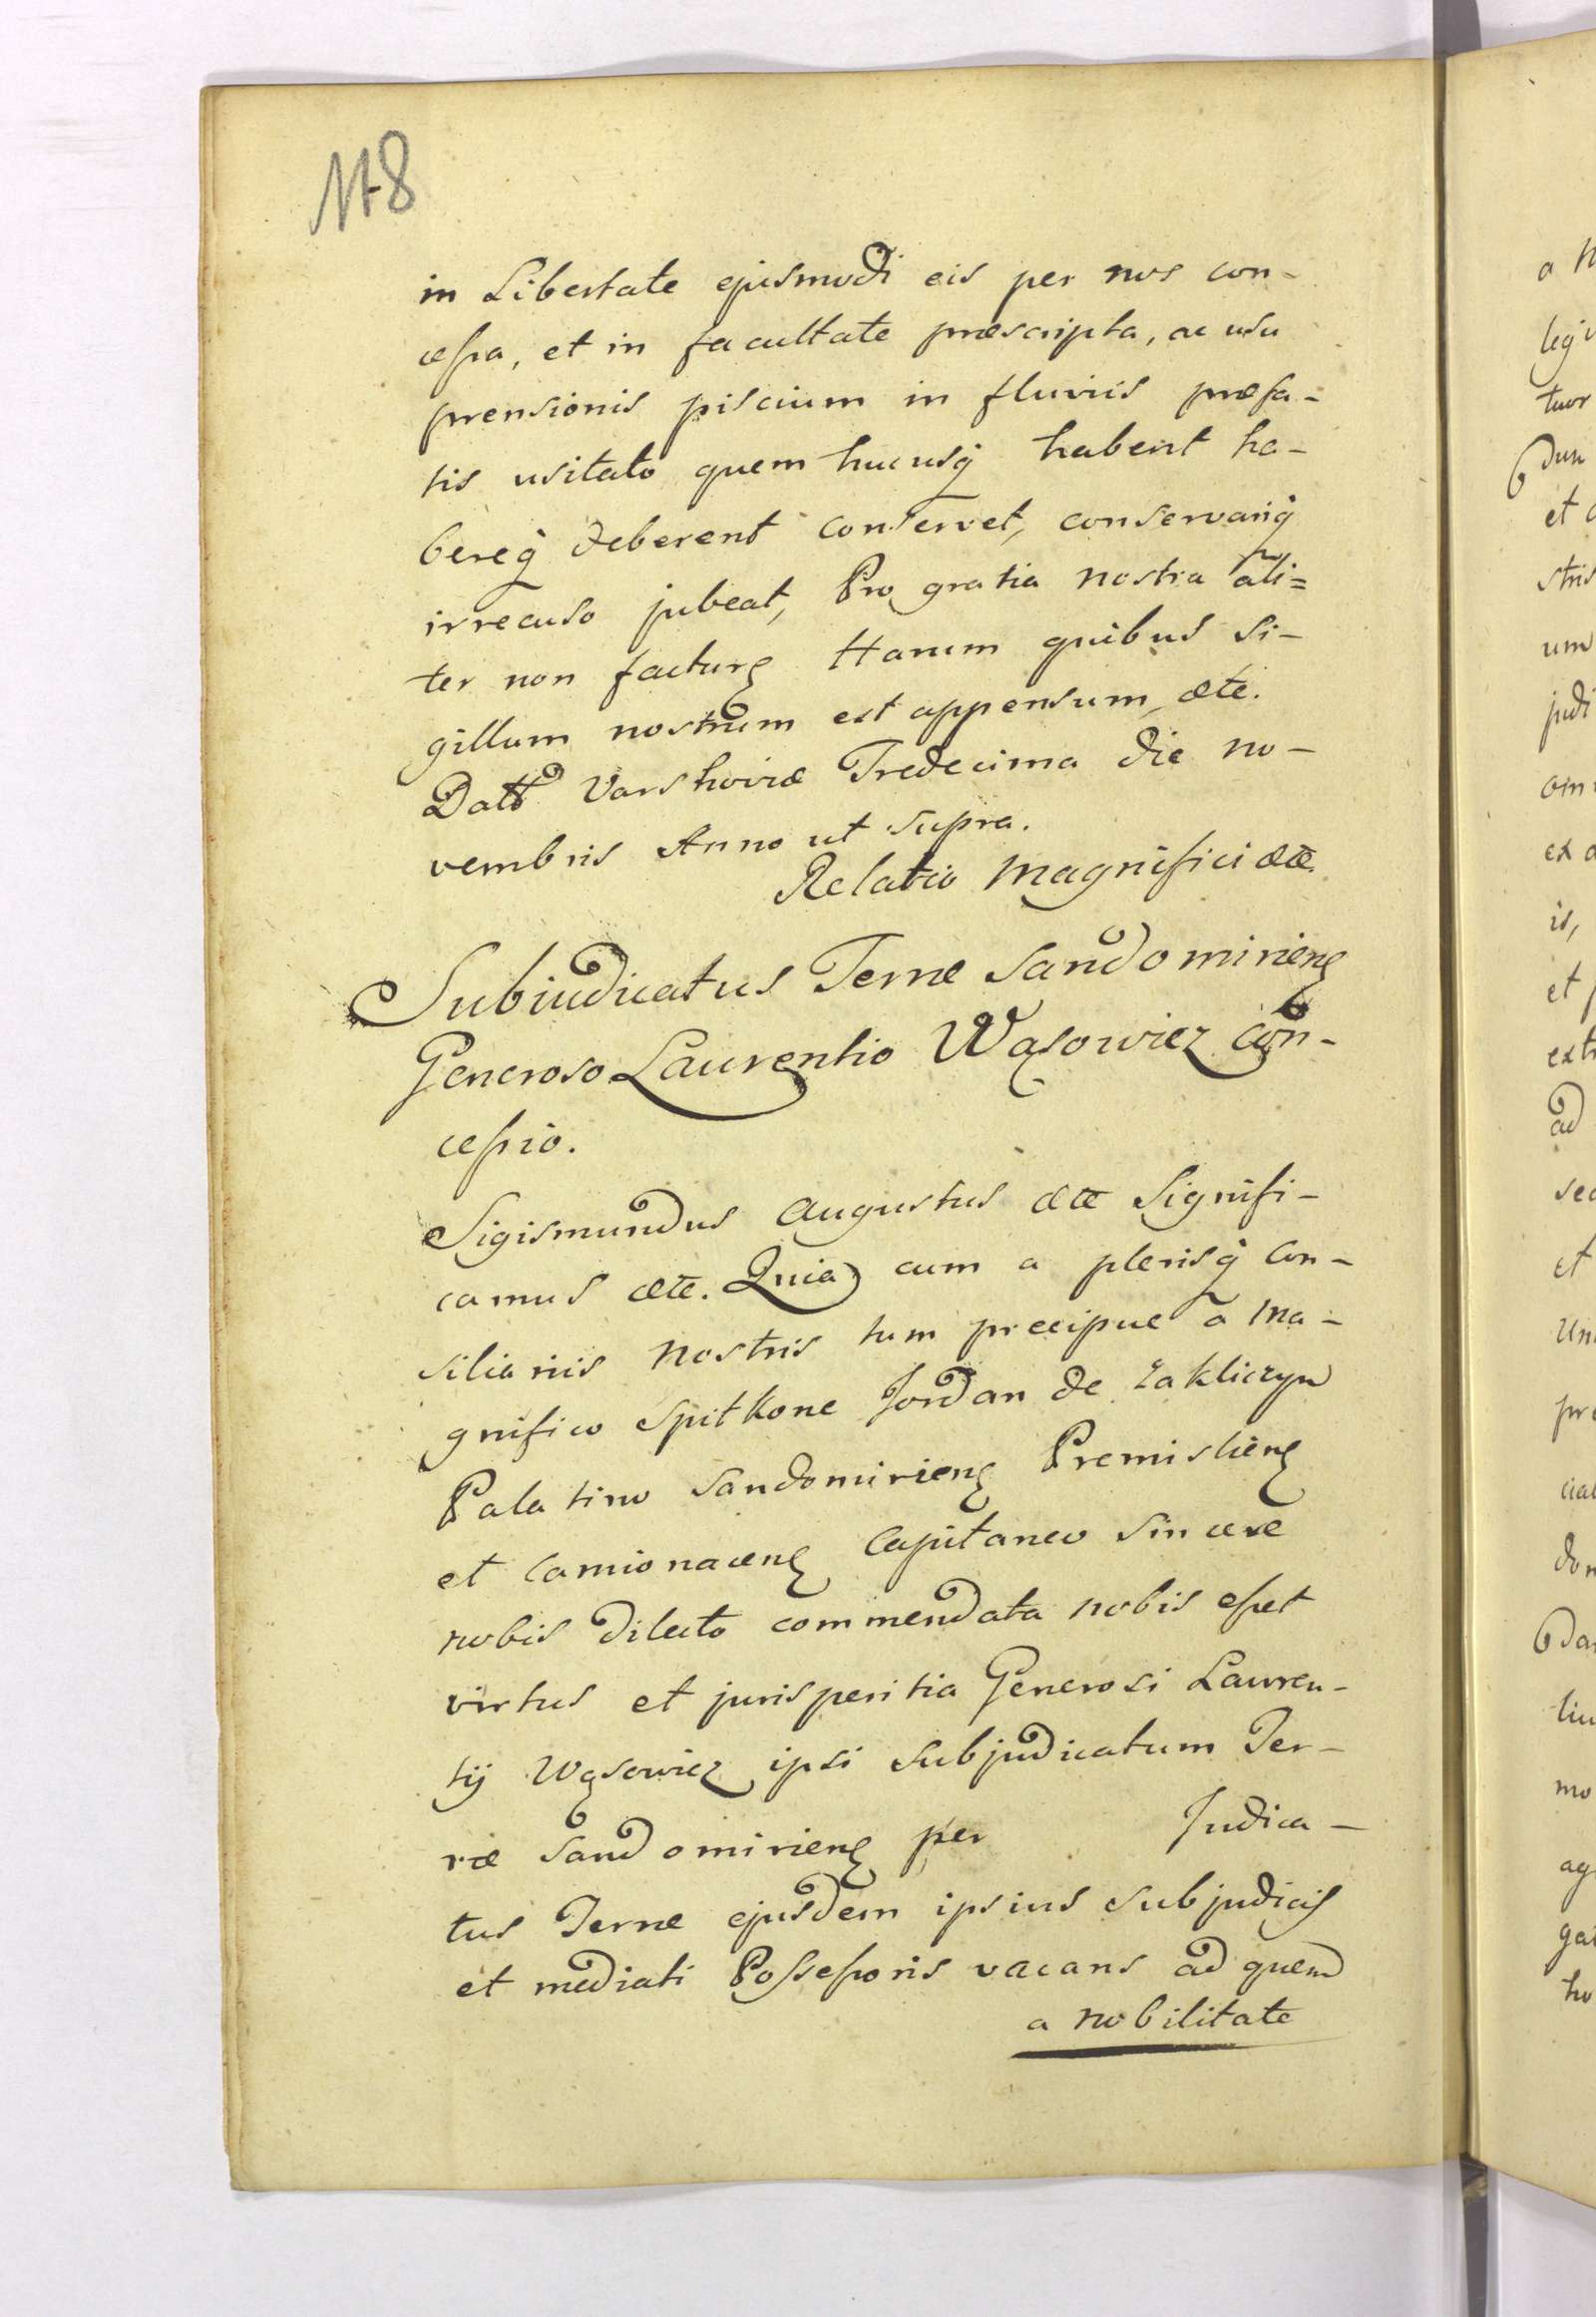 118
in Libertate ejusmodi eis per nos con-
cessa, et in facultate præscripta, ac usu
prensionis piscium in fluviis præfa-
tis usitato quem hucusq habent ha-
bereq deberent conservet, conservariq
irrecuso jubeat, Pro gratia nostra ali=
ter non factur Harum quibus si-
gillum nostrum est appensum etc.
Datt Varshoviæ Tredecima die no-
vembris Anno ut supra.
Relatio Magnifici etc.
Subiudicatus Terræ Sandomirien
Generoso Laurentio Wąsowicz con-
cessio.
Sigismundus Augustus etc Signifi-
camus etc. Quia cum a plerisq con-
siliariis nostris tum præcipue a Ma-
gnifico Spitkone Jordan de Zakliczyn
Palatino Sandomirien Premislien
et Camionacen Capitaneo sincere
nobis dilecto commendata nobis esset
virtus et jurisperitia Generosi Lauren-
tij Wąsowicz ipsi Subjudicatum Ter-
ræ Sandomirien per Judica-
tus Terræ ejusdem ipsius subjudicis
et mediati Possessoris vacans ad quem
a nobilitate
a
legi
tuor
dun
et
stris
um
judi
om
ex
is,
et
extr
ad
sec
et
Un
pr
cial
don
Da
liu
mo
ag
gat
ho